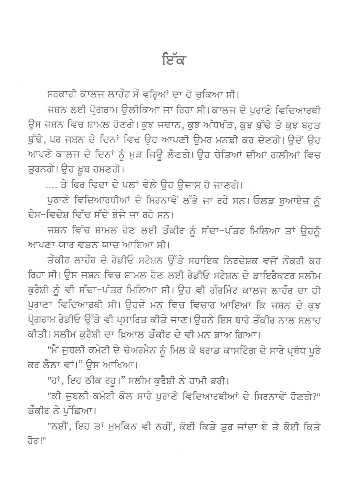 ਇੱਕ
ਸਰਕਾਰੀ ਕਾਲਜ ਲਾਹੌਰ ਸੌ ਵਰ੍ਹਿਆਂ ਦਾ ਹੋ ਚੁਕਿਆ ਸੀ।
ਜਸ਼ਨ ਲਈ ਪ੍ਰੋਗਰਾਮ ਉਲੀਕਿਆ ਜਾ ਰਿਹਾ ਸੀ। ਕਾਲਜ ਦੇ ਪੁਰਾਣੇ ਵਿਦਿਆਰਥੀ
ਉਸ ਜਸ਼ਨ ਵਿਚ ਸ਼ਾਮਲ ਹੋਣਗੇ। ਕੁਝ ਜਵਾਨ, ਕੁਝ ਅੱਧਖੜ, ਕੁਝ ਬੁੱਢੇ ਤੇ ਕੁਝ ਬਹੁਤ
ਬੁੱਢੇ, ਪਰ ਜਸ਼ਨ ਦੇ ਦਿਨਾਂ ਵਿਚ ਉਹ ਆਪਣੀ ਉਮਰ ਮਨਫ਼ੀ ਕਰ ਦੇਣਗੇ। ਉਦੋਂ ਉਹ
ਆਪਣੇ ਕਾਲਜ ਦੇ ਦਿਨਾਂ ਨੂੰ ਮੁੜ ਜਿਊ ਲੈਣਗੇ। ਉਹ ਚੇਤਿਆਂ ਦੀਆਂ ਗਲੀਆਂ ਵਿਚ
ਤੁਰਨਗੇ। ਉਹ ਖ਼ੂਬ ਹਸਣਗੇ।
.... ਤੇ ਫਿਰ ਵਿਦਾ ਦੇ ਪਲਾਂ ਵੇਲੇ ਉਹ ਉਦਾਸ ਹੋ ਜਾਣਗੇ।
ਪੁਰਾਣੇ ਵਿਦਿਆਰਥੀਆਂ ਦੇ ਸਿਰਨਾਵੇਂ ਲੱਭੇ ਜਾ ਰਹੇ ਸਨ। ਓਲਡ ਬੁਆਏਜ਼ ਨੂੰ
ਦੇਸ-ਵਿਦੇਸ਼ ਵਿੱਚ ਸੱਦੇ ਭੇਜੇ ਜਾ ਰਹੇ ਸਨ।
ਜਸ਼ਨ ਵਿੱਚ ਸ਼ਾਮਲ ਹੋਣ ਲਈ ਤੌਕੀਰ ਨੂੰ ਸੱਦਾ-ਪੱਤਰ ਮਿਲਿਆ ਤਾਂ ਉਹਨੂੰ
ਆਪਣਾ ਯਾਰ ਵਤਨ ਯਾਦ ਆਇਆ ਸੀ।
ਤੌਕੀਰ ਲਾਹੌਰ ਦੇ ਰੇਡੀਓ ਸਟੇਸ਼ਨ ਉੱਤੇ ਸਹਾਇਕ ਨਿਰਦੇਸ਼ਕ ਵਜੋਂ ਨੌਕਰੀ ਕਰ
ਰਿਹਾ ਸੀ। ਉਸ ਜਸ਼ਨ ਵਿਚ ਸ਼ਾਮਿਲ ਹੋਣ ਲਈ ਰੇਡੀਓ ਸਟੇਸ਼ਨ ਦੇ ਡਾਇਰੈਕਟਰ ਸਲੀਮ
ਕੁਰੈਸ਼ੀ ਨੂੰ ਵੀ ਸੱਦਾ-ਪੱਤਰ ਮਿਲਿਆ ਸੀ। ਉਹ ਵੀ ਗੌਰਮਿੰਟ ਕਾਲਜ ਲਾਹੌਰ ਦਾ ਹੀ
ਪੁਰਾਣਾ ਵਿਦਿਆਰਥੀ ਸੀ। ਉਹਦੇ ਮਨ ਵਿਚ ਵਿਚਾਰ ਆਇਆ ਕਿ ਜਸ਼ਨ ਦੇ ਕੁਝ
ਪ੍ਰੋਗਰਾਮ ਰੇਡੀਓ ਉੱਤੇ ਵੀ ਪ੍ਰਸਾਰਿਤ ਕੀਤੇ ਜਾਣ। ਉਹਨੇ ਇਸ ਬਾਰੇ ਤੌਕੀਰ ਨਾਲ ਸਲਾਹ
ਕੀਤੀ। ਸਲੀਮ ਕੁਰੈਸ਼ੀ ਦਾ ਖ਼ਿਆਲ ਤੌਕੀਰ ਦੇ ਵੀ ਮਨ ਭਾਅ ਗਿਆ।
"ਮੈਂ ਜੁਬਲੀ ਕਮੇਟੀ ਦੇ ਚੇਅਰਮੈਨ ਨੂੰ ਮਿਲ ਕੇ ਬਰਾਡ ਕਾਸਟਿੰਗ ਦੇ ਸਾਰੇ ਪ੍ਰਬੰਧ ਪੂਰੇ
ਕਰ ਲੈਨਾ ਵਾਂ।" ਉਸ ਆਖਿਆ।
"ਹਾਂ, ਇਹ ਠੀਕ ਰਹੂ।" ਸਲੀਮ ਕੁਰੈਸ਼ੀ ਨੇ ਹਾਮੀ ਭਰੀ।
"ਕੀ ਜੁਬਲੀ ਕਮੇਟੀ ਕੋਲ ਸਾਰੇ ਪੁਰਾਣੇ ਵਿਦਿਆਰਥੀਆਂ ਦੇ ਸਿਰਨਾਵੇਂ ਹੋਣਗੇ?"
ਤੌਕੀਰ ਨੇ ਪੁੱਛਿਆ।
"ਨਈਂ, ਇਹ ਤਾਂ ਮੁਮਕਿਨ ਵੀ ਨਹੀਂ, ਕੋਈ ਕਿਤੇ ਤੁਰ ਜਾਂਦਾ ਏ ਤੇ ਕੋਈ ਕਿਤੇ
ਹੋਰ!"